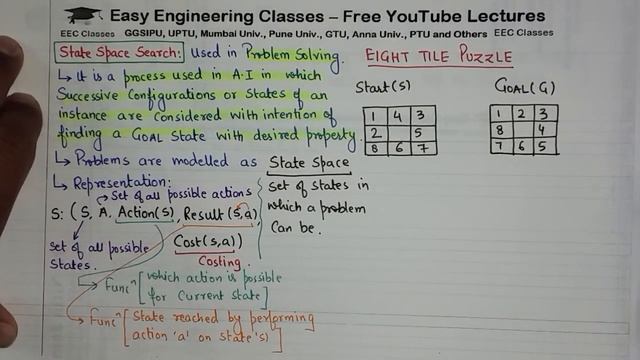 Easy Engineering Classes – Free YouTube Lectures
EEC Classes GGSIPU, UPTU, Mumbai Univ., Pune Univ., GTU, Anna Univ., PTU and Others EEC Classes
State Space Search: Used in Problem Solving.
↳ It is a process used in A.I in which
Successive Configurations or States of an
instance are considered with intention of
finding a GOAL State with desired property.
↳ Problems are modelled as State Space
↳ Representation:
Set of all possible actions
S: (S, A, Action(s), Result(s,a)
Cost(s,a))
Costing.
Set of all possible
States.
Funcⁿ [which action is possible
for current state]
Funcⁿ [State reached by performing
action 'a' on state 's]
Set of States in
which a problem
can be.
EIGHT TILE PUZZLE
Start(S)
1 4 3
2 5
8 6 7
GOAL(G)
1 2 3
8 4
7 6 5